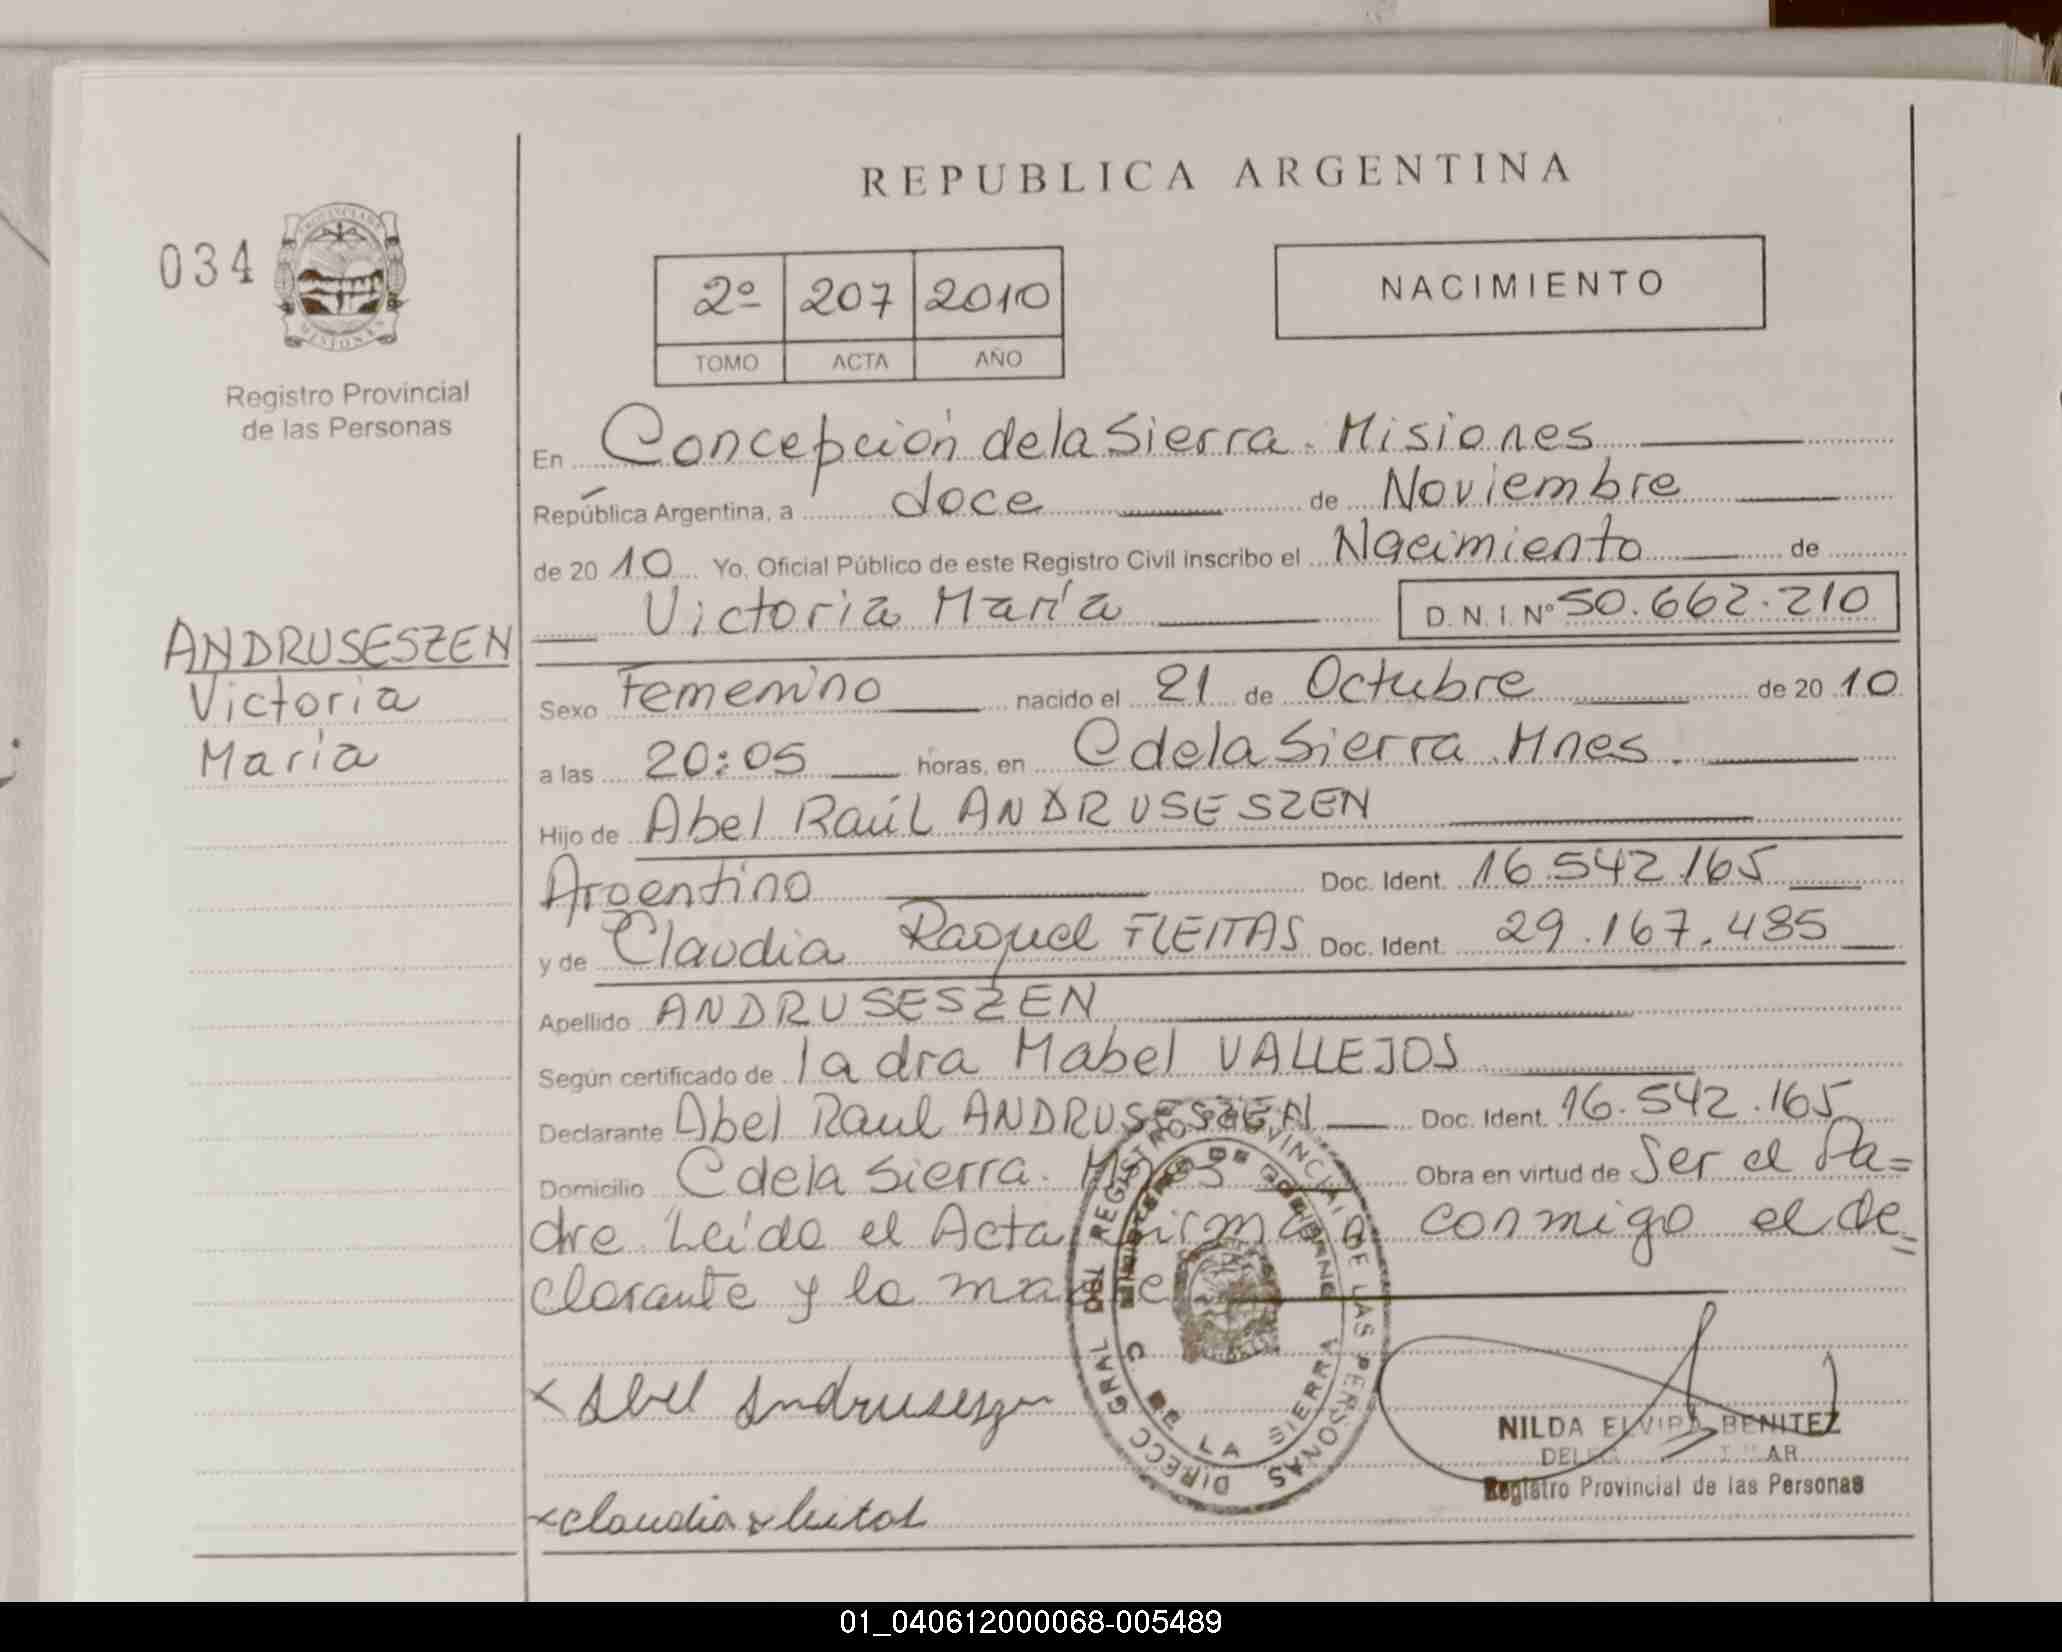 REPUBLICA ARGENTINA
034
2º 207 2010
TOMO ACTA AÑO
NACIMIENTO
Registro Provincial
de las Personas
En Concepción de la Sierra. Misiones
República Argentina, a doce de Noviembre
de 2010 Yo, Oficial Público de este Registro Civil inscribo el Nacimiento de
Victoria María D.N.I. Nº 50.662.210
ANDRUSESZEN
Victoria
María
Sexo Femenino nacido el 21 de Octubre de 2010
a las 20:05 horas, en C de la Sierra. Mnes.
Hijo de Abel Raúl ANDRUSESZEN
Argentino Doc. Ident. 16.542.165
y de Claudia Raquel FLEITAS Doc. Ident. 29.167.485
Apellido ANDRUSESZEN
Según certificado de la dra Mabel VALLEJOS
Declarante Abel Raul ANDRUSESZEN Doc. Ident. 16.542.165
Domicilio C de la Sierra. Mnes Obra en virtud de Ser el Pa=
dre Leída el Acta firman conmigo el de=
clarante y la madre
DIRECC GRAL DEL REGISTRO PROVINCIAL DE LAS PERSONAS
MINISTERIO DE GOBIERNO
C DE LA SIERRA
x Abel Andruseszen
x Claudia Fleitas
NILDA ELVIRA BENITEZ
Registro Provincial de las Personas
01_040612000068-005489